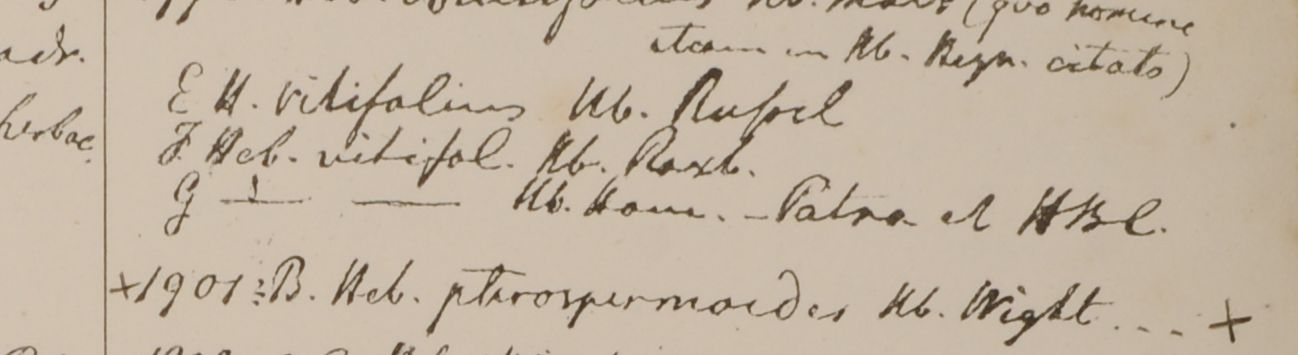 Hb. (quo nomine
etiam in Hb. Heyn. citato)
adr.
E H. vitifolius Hb. Russel
herbac.
F. Heb. vitifol. Hb. Roxb.
G — — Hb. Ham. – Patna et HBC.
×1901: B. Heb. pterospermoides Hb. Wight ... ×